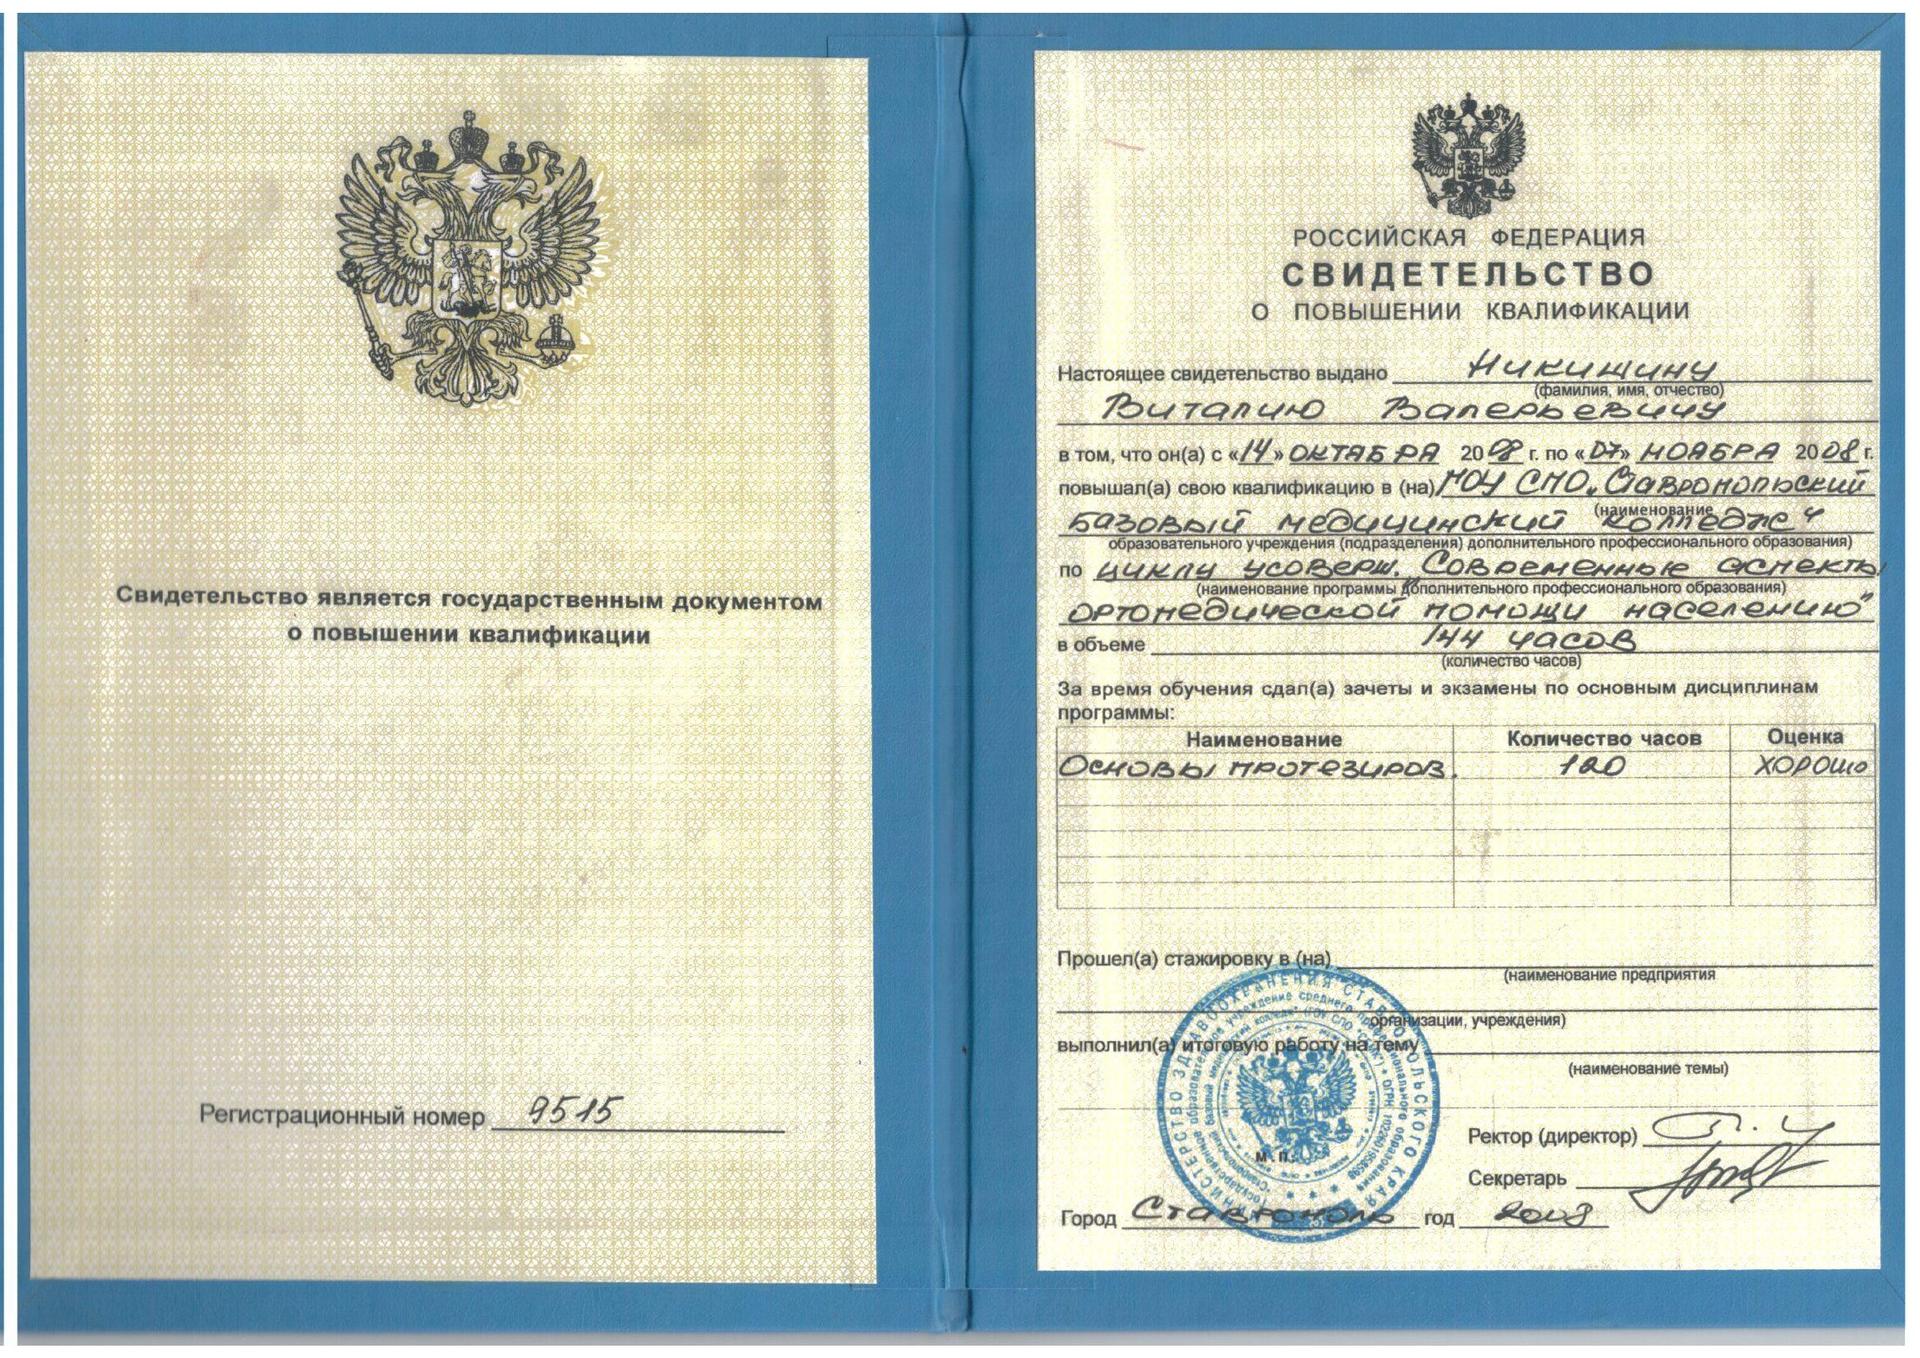 Свидетельство является государственным документом
о повышении квалификации
Регистрационный номер 9515
РОССИЙСКАЯ ФЕДЕРАЦИЯ
СВИДЕТЕЛЬСТВО
О ПОВЫШЕНИИ КВАЛИФИКАЦИИ
Настоящее свидетельство выдано Никишину
(фамилия, имя, отчество)
Виталию Валерьевичу
в том, что он(а) с «14» октября 2008 г. по «07» ноября 2008 г.
повышал(а) свою квалификацию в (на) ГОУ СПО „Ставропольский
(наименование
базовый медицинский колледж“
образовательного учреждения (подразделения) дополнительного профессионального образования)
по циклу усоверш. Современные аспекты
(наименование программы дополнительного профессионального образования)
ортопедической помощи населению"
в объеме 144 часов
(количество часов)
За время обучения сдал(а) зачеты и экзамены по основным дисциплинам
программы:
Наименование Количество часов Оценка
Основы протезиров. 120 хорошо
Прошел(а) стажировку в (на)
(наименование предприятия
организации, учреждения)
выполнил(а) итоговую работу на тему
(наименование темы)
МИНИСТЕРСТВО ЗДРАВООХРАНЕНИЯ СТАВРОПОЛЬСКОГО КРАЯ
Государственное образовательное учреждение среднего профессионального образования
М.П.
Ректор (директор)
Секретарь
Город Ставрополь год 2008